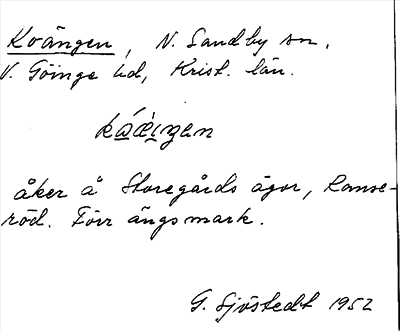 Kvängen, N. Sandby sn,
V. Göinge hd, Krist. län.
åker å Storegårds ägor, Ranse-
röd. Förr ängsmark.
G. Sjöstedt 1952